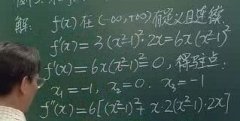 解: f(x)在(-∞,+∞)有定义且连续
f'(x)=3(x²-1)²·2x=6x(x²-1)²
f'(x)=6x(x²-1)²=0, 得驻点:
x₁=-1, x₂=0. x₃=-1
f"(x)=6[(x²-1)²+x·2(x²-1)·2x]